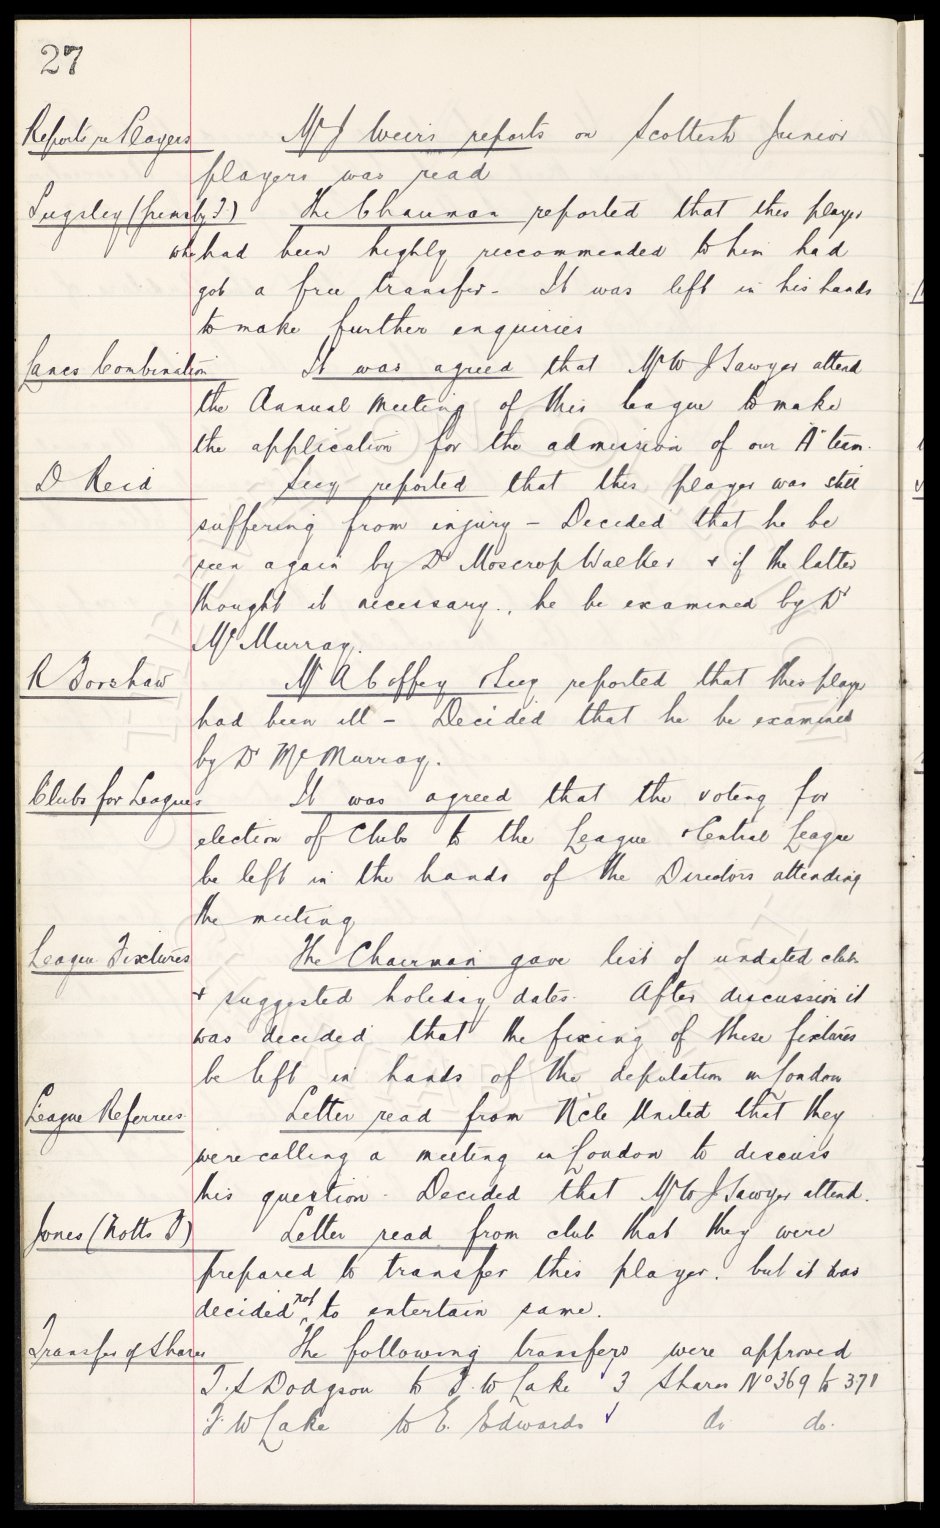 27
Reports re Players Mr J Weirs reports on Scottish Junior
players was read
Pugsley (Grimsby T) The Chairman reported that this player
who had been highly reccommended to him had
got a free transfer - It was left in his hands
to make further enquiries
Lancs Combination It was agreed that Mr W J Sawyer attend
the Annual Meeting of this league to make
the application for the admission of our "A" team.
D Reid Secy reported that this player was still
suffering from injury - Decided that he be
seen again by Dr Moscrop Walker & if the latter
thought it necessary, he be examined by Dr
McMurray.
R Forshaw Mr A Coffey & Secy reported that this player
had been ill - Decided that he be examined
by Dr McMurray.
Clubs for Leagues It was agreed that the voting for
election of Clubs to the League & Central League
be left in the hands of the Directors attending
the meeting
League Fixtures The Chairman gave list of undated clubs
& suggested holiday dates. After discussion it
was decided that the fixing of these fixtures
be left in hands of the deputation in London
League Referees Letter read from N'cle United that they
were calling a meeting in London to discuss
this question. Decided that Mr W J Sawyer attend.
Jones (Notts F) Letter read from club that they were
prepared to transfer this player. but it was
decided not to entertain same.
Transfer of Shares The following transfers were approved
T. S Dodgson to F. W Lake 3 Shares No 369 to 371
F. W Lake to E. Edwards do do.